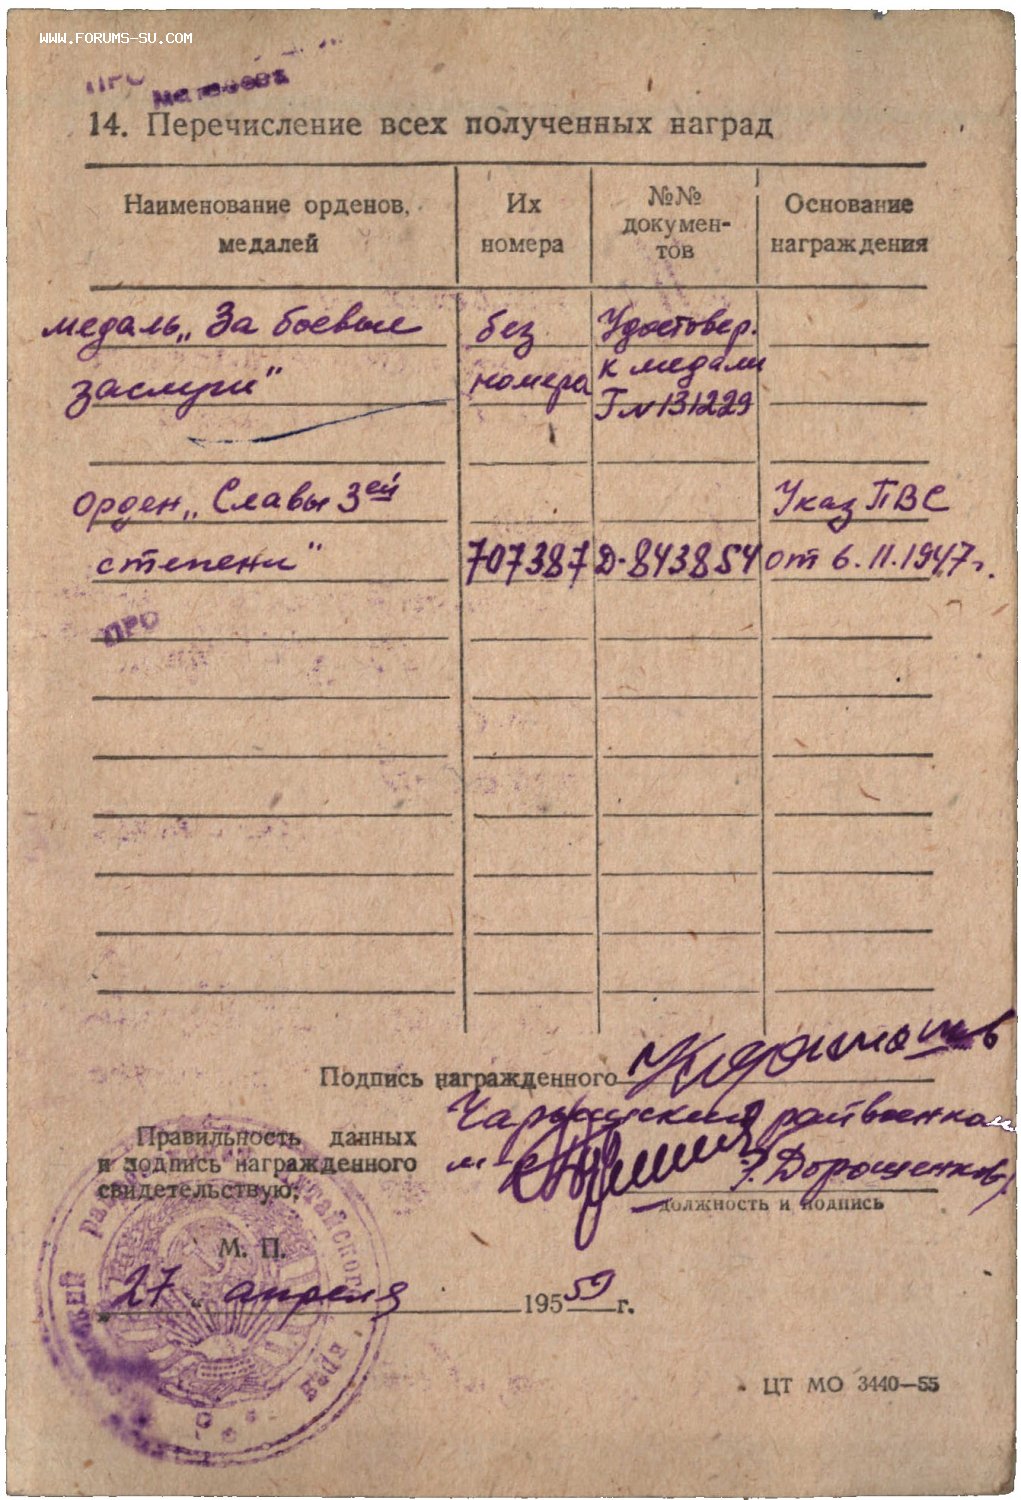 WWW.FORUMS-SU.COM
ПРО
Матвеева
14. Перечисление всех полученных наград
Наименование орденов, медалей
Их номера
№№ докумен-тов
Основание награждения
медаль „За боевые
заслуги"
без
номера
Удостовер.
к медали
Г № 131229
орден „Славы 3ей
степени"
707387
Д-843854
Указ ПВС
от 6.11.1947 г.
ПРО
Подпись награжденного
Правильность данных
и подпись награжденного
свидетельствую:
райвоенком
м-р
/Дорощенков/
должность и подпись
М. П.
27 апреля 1959 г.
ЦТ МО 3440—55